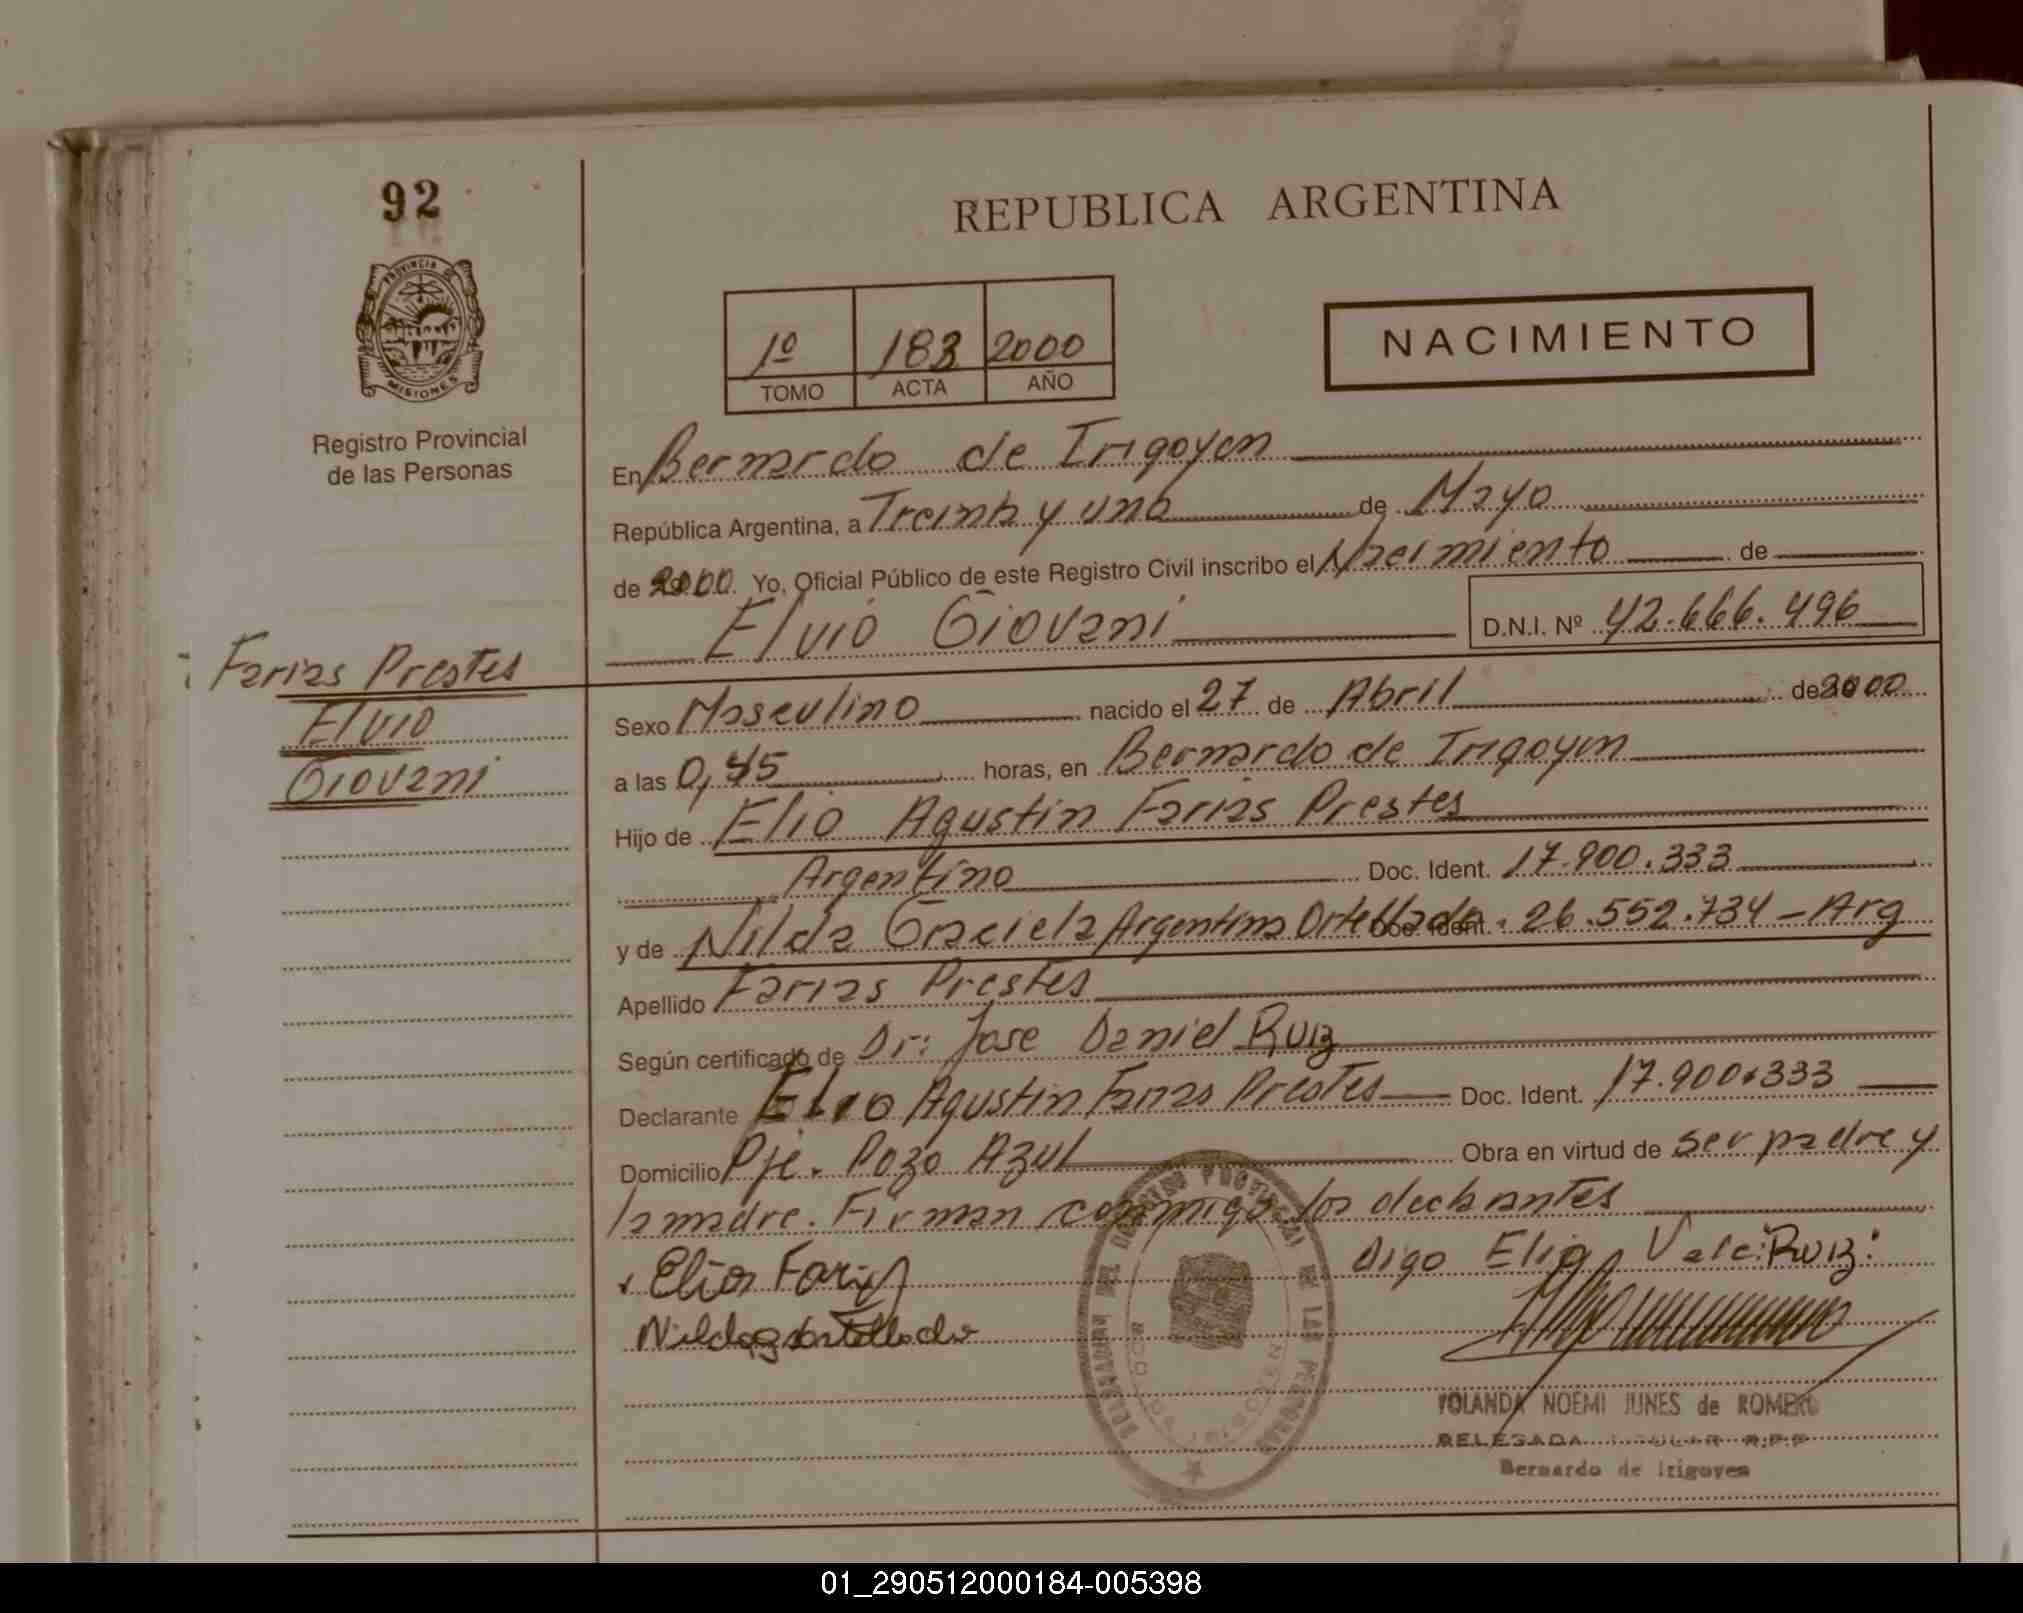 92
PROVINCIA DE
MISIONES
Registro Provincial
de las Personas
REPUBLICA ARGENTINA
1º 183 2000
TOMO ACTA AÑO
NACIMIENTO
En Bernardo de Irigoyen
República Argentina, a Treinta y uno de Mayo
de 2000. Yo, Oficial Público de este Registro Civil inscribo el Nacimiento de
Elvio Giovani D.N.I. Nº 42.666.496
Farias Prestes
Elvio
Giovani
Sexo Masculino nacido el 27 de Abril de 2000
a las 0,45 horas, en Bernardo de Irigoyen
Hijo de Elio Agustin Farias Prestes
Argentino Doc. Ident. 17.900.333
y de Nilda Graciela Argentina Ortellado Doc. Ident. 26.552.734 - Arg
Apellido Farias Prestes
Según certificado de Dr: Jose Daniel Ruiz
Declarante Elio Agustin Farias Prestes Doc. Ident. 17.900.333
Domicilio Pje. Pozo Azul Obra en virtud de ser padre y
la madre. Firman conmigo los declarantes
Elio Farias Digo Elio Vale: Ruiz:
Nilda g ortellado
YOLANDA NOEMI JUNES de ROMERO
DELEGADA TITULAR R.P.P
Bernardo de Irigoyen
01_290512000184-005398